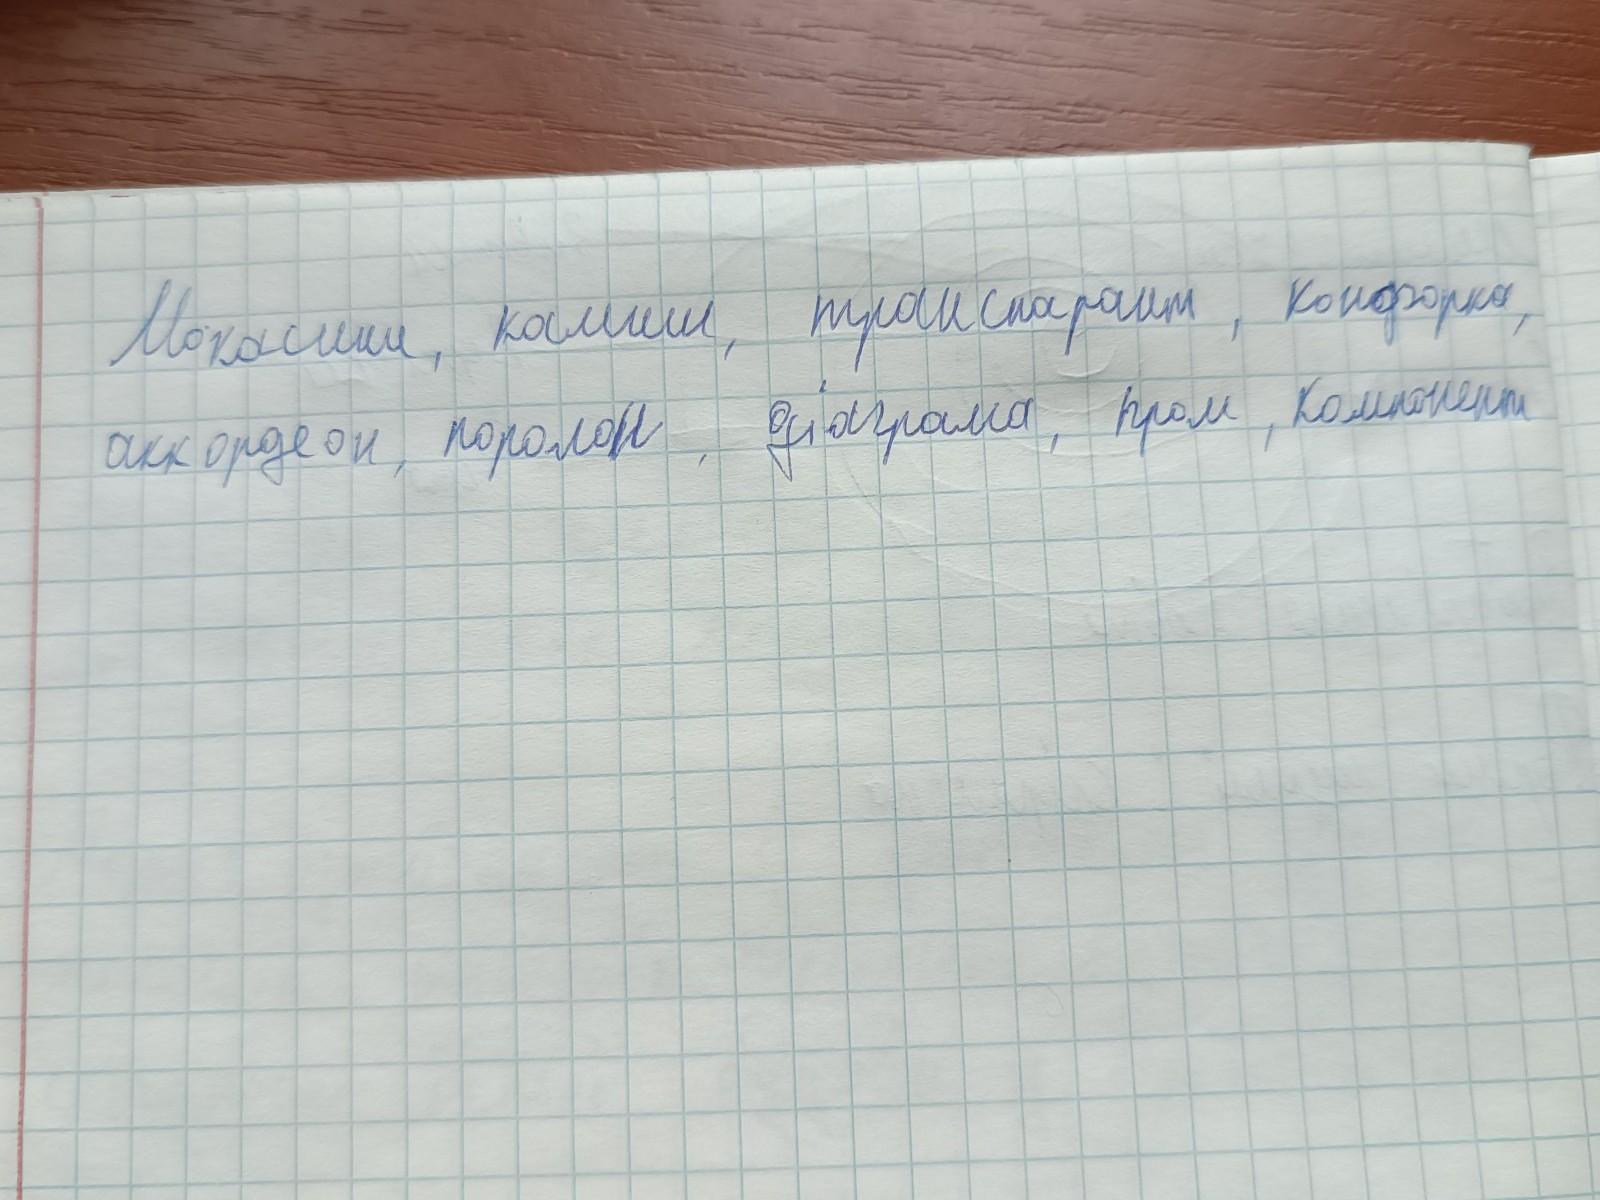 Мокасини, камин, транспарант, конфорка,
аккордеон, поролон, діаграма, пром, компонент